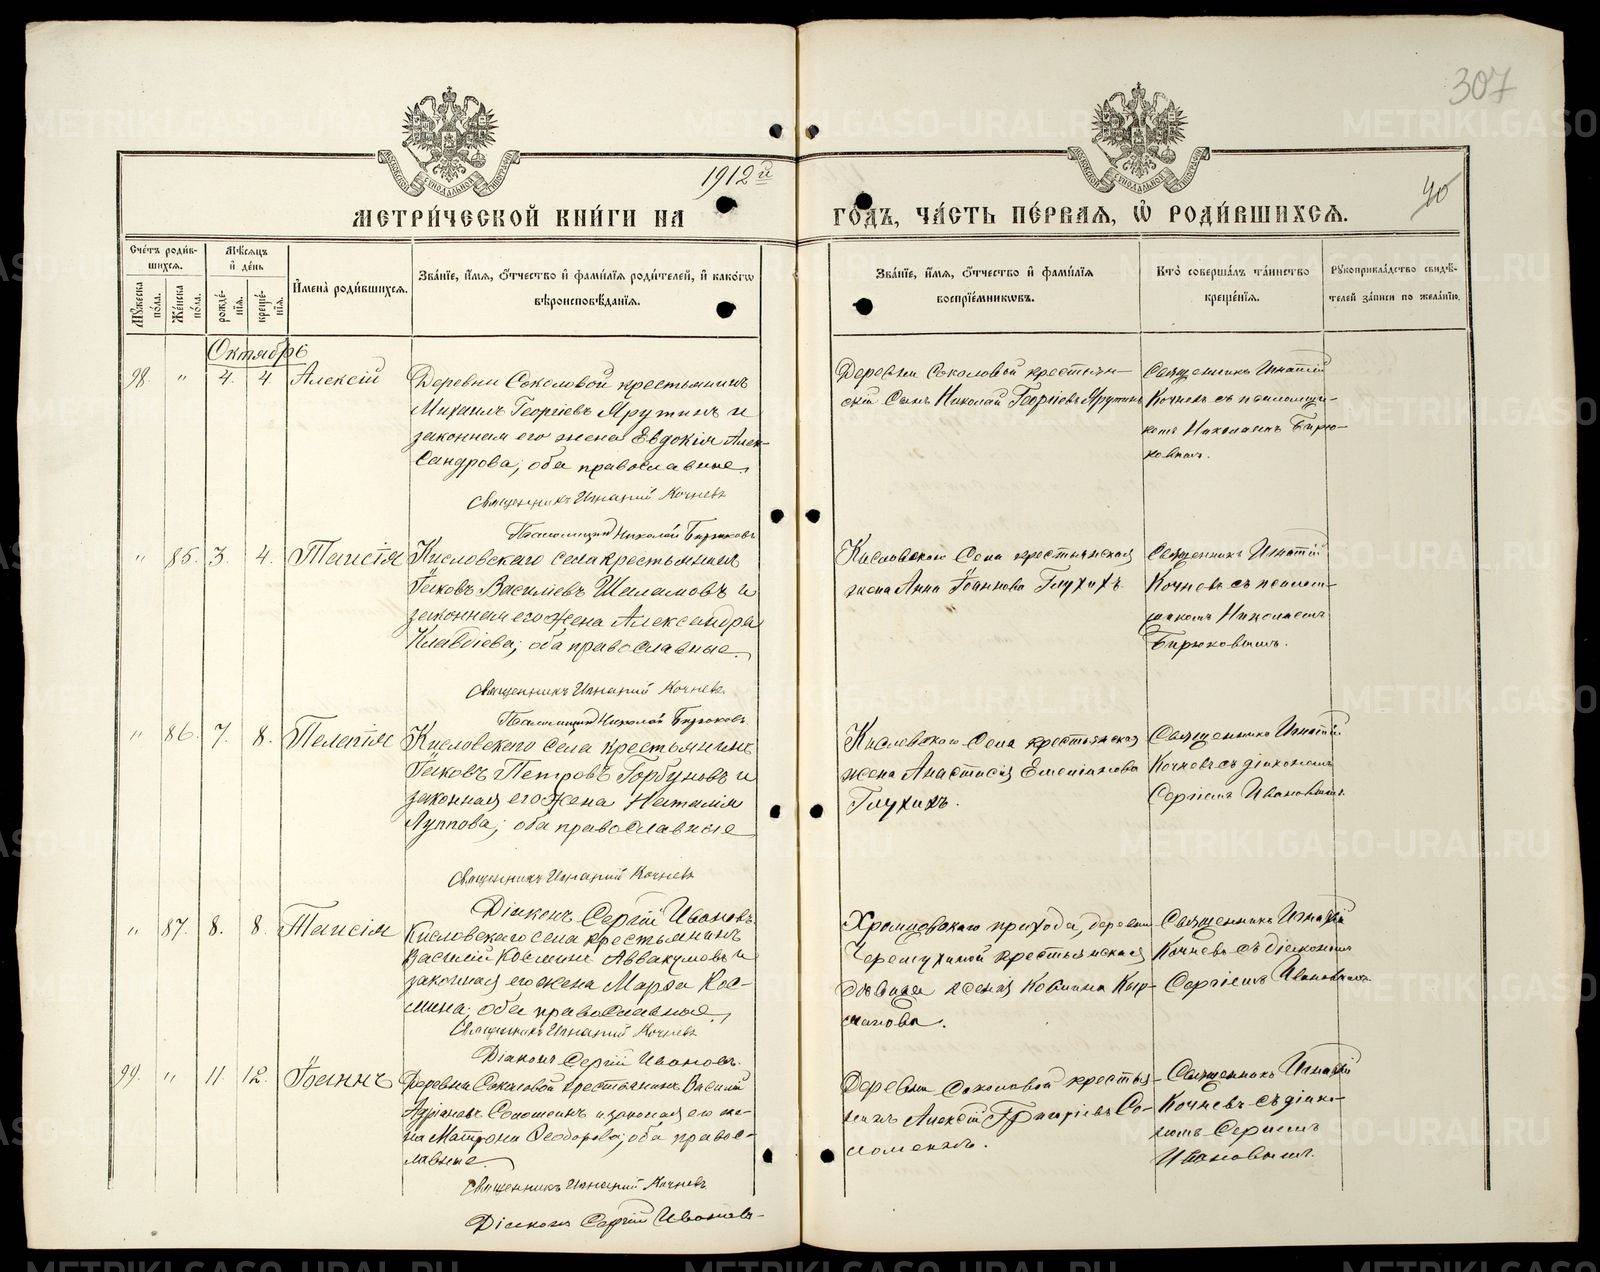 307
1912й
40
МЕТРИ́ЧЕСКОЙ КНИ́ГИ НА
ГО́ДЪ, ЧА́СТЬ ПЕ́РВАЯ, Ѡ҆ РОДИ́ВШИХСЯ.
Сче́тъ роди́в-
шихся.
Мѣ́сяцъ
и҆ де́нь
И҆мена̀ роди́вшихся.
Зва́нїе, и҆́мя, ѻ҆́тчество и҆ фами́лїя роди́телей, и҆ како́гѡ
вѣроисповѣ́данїя.
Му́жеска по́ла.
Же́нска по́ла.
рожде́нїя.
креще́нїя.
Зва́нїе, и҆́мя, ѻ҆́тчество и҆ фами́лїя
воспрїе́мниковъ.
Кто̀ соверша́лъ та́инство
креще́нїя.
Рꙋкоприкла́дство свидѣ́-
телей за́писи по жела́нїю.
Октябрь
98. " 4. 4 Алексій
Деревни Соколовой крестьянинъ
Михаилъ Георгіевъ Ярутинъ и
законная его жена Евдокія Алек-
сандрова; оба православные.
Священникъ Игнатій Кочневъ
Псаломщикъ Николай Бирюковъ
Деревни Соколовой крестьян-
скій сынъ Николай Георгіевъ Ярутинъ
Священникъ Игнатій
Кочневъ съ псаломщи-
комъ Николаемъ Бирю-
ковымъ.
" 85. 3. 4. Таисія
Кисловского села крестьянинъ
Іаковъ Василіевъ Шаламовъ и
законная его жена Александра
Клавдіева; оба православные.
Священникъ Игнатій Кочневъ
Псаломщикъ Николай Бирюковъ
Кисловского села крестьянская
жена Анна Іоаннова Глухихъ
Священникъ Игнатій
Кочневъ съ псалом-
щикомъ Николаемъ
Бирюковымъ.
" 86. 7. 8. Пелагія
Кисловского села крестьянинъ
Іаковъ Петровъ Горбуновъ и
законная его жена Наталія
Луппова; оба православные
Священникъ Игнатій Кочневъ
Діаконъ Сергій Ивановъ
Кисловского села крестьянская
жена Анастасія Емеліанова
Глухихъ.
Священникъ Игнатій
Кочневъ съ діакономъ
Сергіемъ Ивановымъ.
" 87. 8. 8. Таисія
Кисловского села крестьянинъ
Василій Косминъ Аввакумовъ и
законная его жена Марѳа Кос-
мина; оба православные.
Священникъ Игнатій Кочневъ
Діаконъ Сергій Ивановъ.
Хромцовскаго прихода, деревни
Черемухиной крестьянская
дѣвица Ксенія Космина
Священникъ Игнатій
Кочневъ съ діакономъ
Сергіемъ Ивановымъ
99. " 11 12. Іоаннъ
Деревни Соколовой крестьянинъ Василій
Адріановъ Соломеинъ и законная его же-
на Матрона Ѳеодорова; оба правос-
лавные.
Священникъ Игнатій Кочневъ
Діаконъ Сергій Ивановъ
Деревни Соколовой крестья-
нинъ Алексій Григоріевъ Со-
ломеинъ.
Священникъ Игнатій
Кочневъ съ діако-
номъ Сергіемъ
Ивановымъ.
METRIKI.GASO-URAL.RU